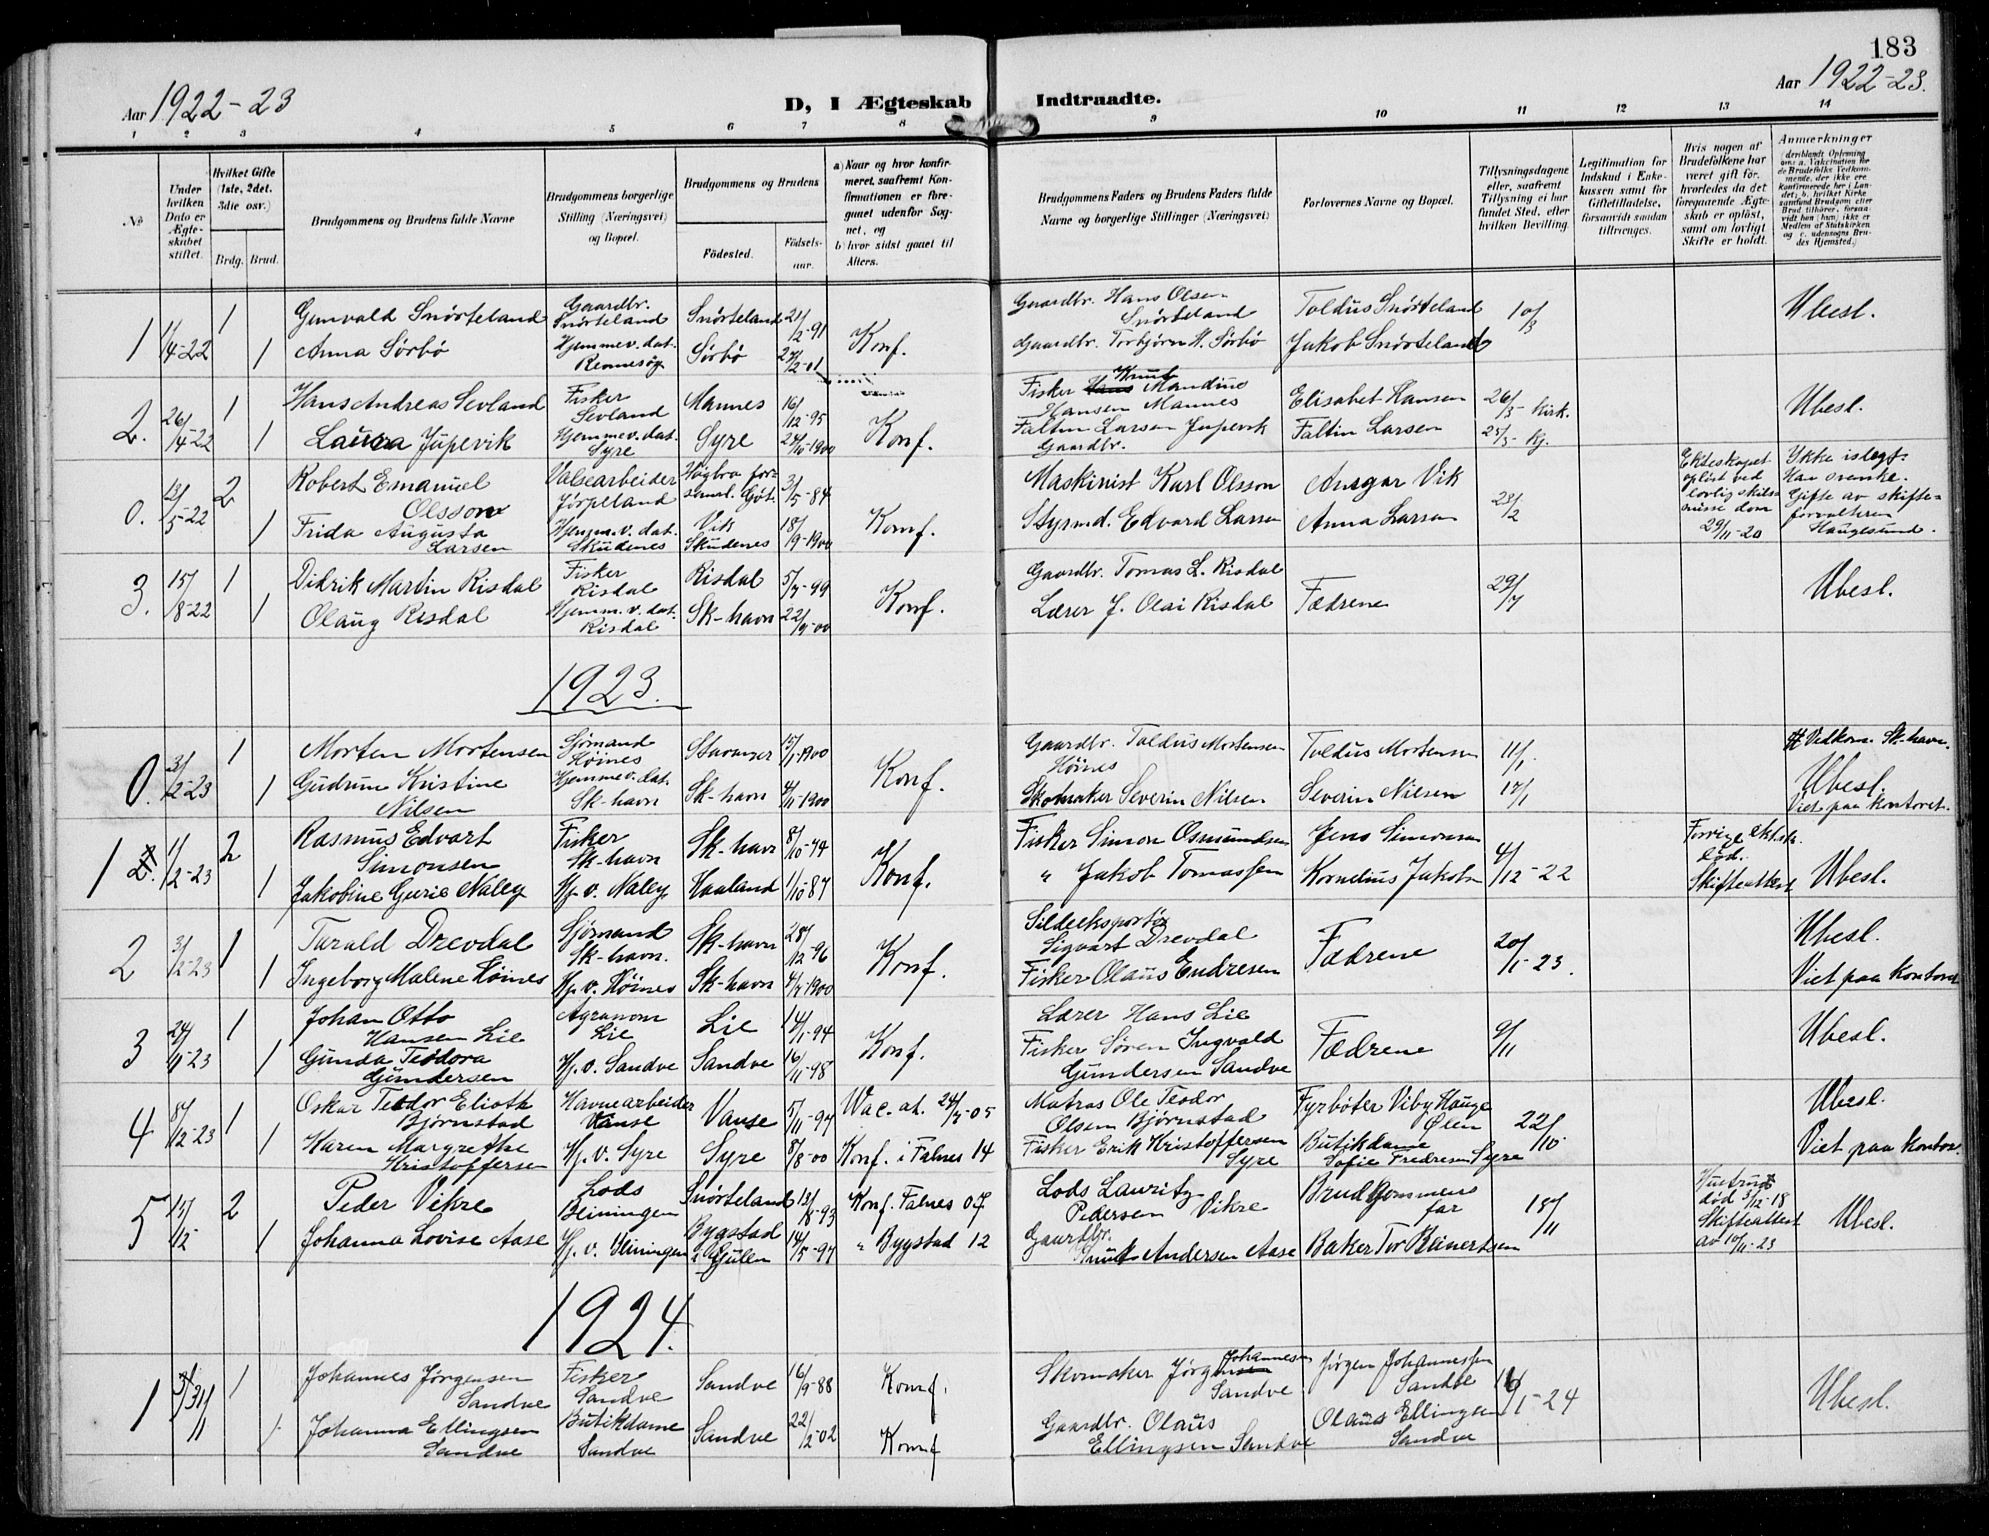 183
Aar 1922-23
D, I Ægteskab Indtraadte.
Aar 1922-23.
1 2 3 4 5 6 7 8 9 10 11 12 13 14
No
Under hvilken Dato er Ægteskabet stiftet.
Hvilket Gifte (1ste, 2det, 3die osv.)
Brdg. Brud.
Brudgommens og Brudens fulde Navne
Brudgommens borgerlige Stilling (Næringsvei) og Bopæl.
Brudgommens og Brudens
Fødested. Fødsels-aar.
a) Naar og hvor konfirmeret, saafremt Konfirmationen er foregaaet udenfor Sognet, og
b) hvor sidst gaaet til Alters.
Brudgommens Faders og Brudens Faders fulde Navne og borgerlige Stillinger (Næringsvei)
Forlovernes Navne og Bopæl.
Tillysningsdagene eller, saafremt Tillysning ei har fundet Sted, efter hvilken Bevilling.
Legitimation for Indskud i Enkekassen samt for Giftetilladelse, forsaavidt saadan tiltrænges.
Hvis nogen af Brudefolkene har været gift før, hvorledes da det foregaaende Ægteskab er opløst, samt om lovligt Skifte er holdt.
Anmerkninger (deriblandt Oplysning om: a. Vakcination for de Brudefolks Vedkommende, der ikke ere Konfirmerede her i Landet; b. hvilket Kirkesamfund Brudgom eller Brud tilhører, forsaavidt han (hun) ikke er Medlem af Statskirken og c. udensogns Brudes Hjemsted.)
1 1/4-22 1 Gunvald Snørteland Gaardbr. Snørteland Snørteland 21/2-91 Konf. Gaardbr. Hans Olsen Snørteland Toldus Snørteland 10/3 Ubesl.
1 Anna Sørbø Hjemmev. dat. Rennesøy Sørbø 27/2-01 Gaardbr. Torbjørn H. Sørbø Jakob Snørteland
2. 26/4-22 1 Hans Andreas Sevland Fisker Sevland Mannes 16/12-95 Konf. Fisker Knut Mandius Hansen Mannes Elisabet Hansen 26/3- Kirk. Ubesl.
1 Laura Jupevik Hjemmev. dat. Syre Syre 24/10-1900 Faltin Larsen Jupevik Gaardbr. Faltin Larsen 25/3- Kj.
0. 13/5-22 2 Robert Emanuel Olsson Valsearbeider Jørpeland Högbro forsaml. Gøt. 3/5-84 Konf. Maskinist Karl Olsson Ansgar Vik 23/2 Ekteskapet opløst ved lovlig skilsmisse dom 29/11-20 Ykke islegt- Han svenske. Gifte av skifteforvalteren Haugesund.
1 Frida Augusta Larsen Hjemm. v. dat. Skudenes Vik Skudenes 18/9-1900 Styrmd. Edvard Larsen Anna Larsen
3. 15/8-22 1 Didrik Martin Risdal Fisker Risdal Risdal 5/7-99 Konf. Gaardbr. Tomas L. Risdal Fædrene 29/7 Ubesl.
1 Olaug Risdal Hjemm. v. dat. Risdal Sk-havn 22/9-00 Lærer J. Olai Risdal
1923.
0. 31/12-23 1 Morten Mortensen Sjømand Høines Stavanger 15/1-1900 Konf. Gaardbr. Toldus Mortensen Høines Toldus Mortensen 11/1. Vedkom. Sk-havn.
1 Gudrun Kristine Nilsen Hjemmev. dat. Sk-havn Sk-havn 4/11-1900 Skomaker Severin Nilsen Severin Nilsen 17/1 Ubesl. Viet paa kontoret.
1 1/2-23 2 Rasmus Edvart Simonsen Fisker Sk-havn Sk-havn 8/10-74 Konf. Fisker Simon Osmundsen Jens Simonsen 4/12-22 Forrige ektesk. død. Skifteattest Ubesl.
1 Jakobine Gurie Naley Hj. v. Naley Haaland 1/10-87 " Jakob Tomassen Kornelius Jakobsen
2 3/2-23 1 Tarald Drevdal Sjømand Sk-havn. Sk-havn 28/12-96 Konf. Sildeeksportør Sigvart Drevdal Fædrene 20/1-23. Ubesl.
1 Ingeborg Malene Høines Hj. v. Høines Sk-havn 4/7-1900 Fisker Olaus Endresen Viet paa kontoret
3 24/11-23 1 Johan Otto Hansen Lie Agronom Lie Lie 14/1-94 Konf. Lærer Hans Lie Fædrene 9/11 Ubesl.
1 Gunda Teodora Gundersen Hj. v. Sandve Sandve 16/11-98 Fisker Søren Ingvald Gundersen Sandve
4 8/12-23 1 Oskar Teodor Elioth Bjørnstad Havnearbeider Vanse Vanse 5/11-97 Vac. at. 24/7-05 Matros Ole Teodor Olsen Bjørnstad Fyrbøter Viby Hauge Ølen 22/10. Ubesl.
1 Karen Margrethe Kristoffersen Hj. v. Syre Syre 8/8-00 Konf. i Falnes 14 Fisker Erik Kristoffersen Syre Butikdame Sofie Fredresen Syre Viet paa kontor.
5 15/12 2 Peder Vikre Lods Beiningen Snørteland 13/8-93 Konf. Falnes 07 Lods Lauritz Pedersen Vikre Brudgommens far 18/11 Hustrus død 3/12-18 Skifteattest av 10/11-23 Ubesl.
1 Johanna Lovise Aase Hj. v. Beiningen Bygstad i Gulen 14/5-97 " Bygstad 12 Gaardbr. Knut Andersen Aase Baker Tor Reinertsen
1924.
1 31/1 1 Johannes Jørgensen Sandve Fisker Sandve Sandve 16/9-88 Konf. Skomaker Jørgen Johannesen Sandve Jørgen Johannessen Sandve 16/1-24 Ubesl.
1 Johanna Ellingsen Sandve Butikdame Sandve Sandve 22/2-02 Konf Gaardbr. Olaus Ellingsen Sandve Olaus Ellingsen Sandve